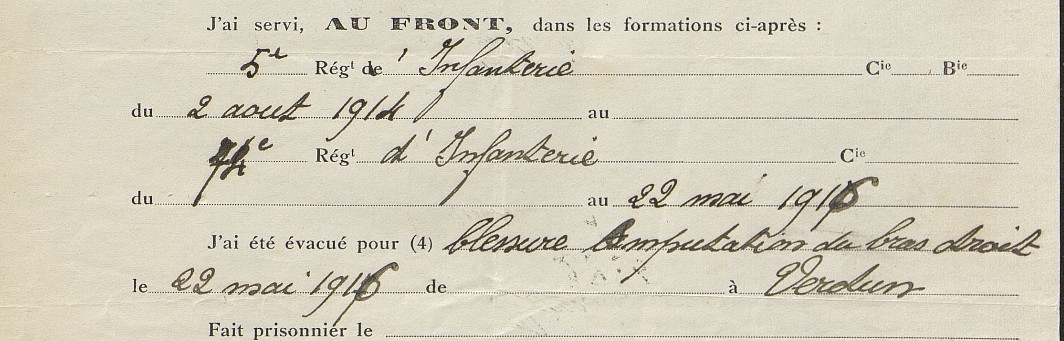 J'ai servi, AU FRONT, dans les formations ci-après :
5e Régt de d' Infanterie Cie Bie
du 2 aout 1914 au
74e Régt d' Infanterie Cie
du au 22 mai 1916
J'ai été évacué pour (4) blessure Amputation du bras droit
le 22 mai 1916 de à Verdun
Fait prisonnier le